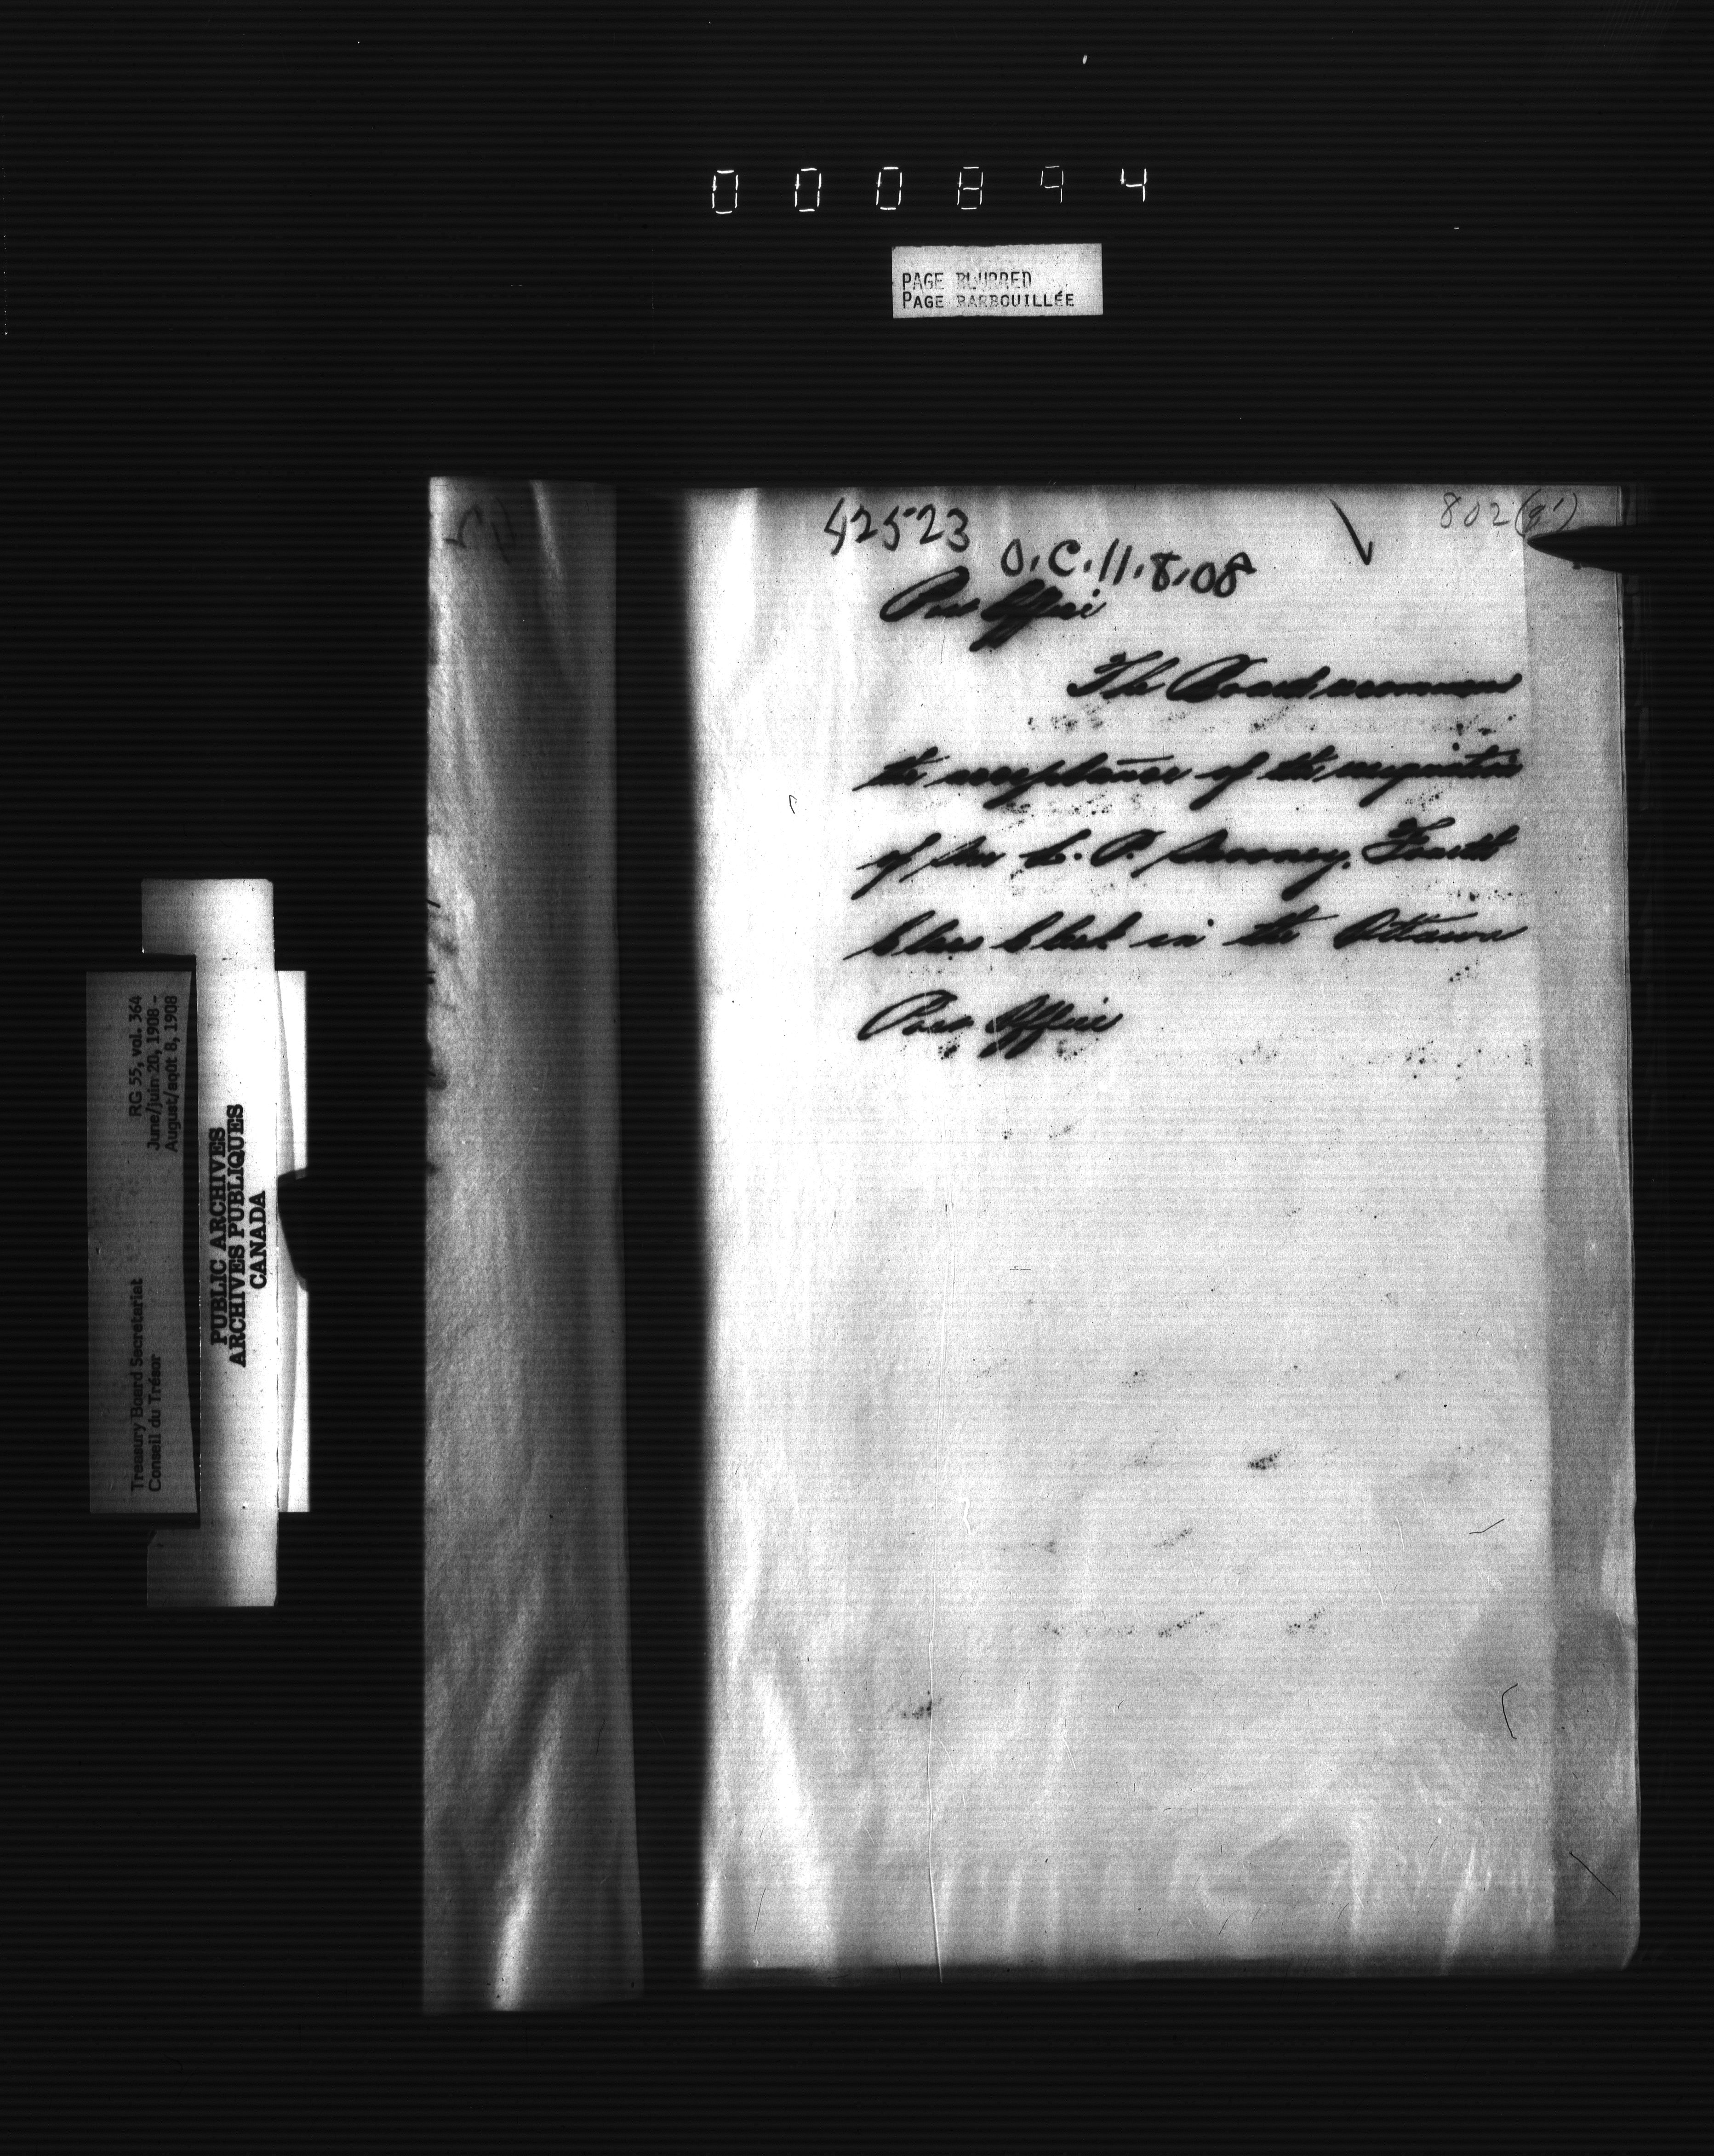 000894
PAGE BLURRED
PAGE BARBOUILLÉE
42523
802(g')
O.C.11.8.08
Post Office
The Board recommend
the acceptance of the resignation
of Mr P. Mooney. Fourth
Class Clerk in the Ottawa
Post Office
Treasury Board Secretariat
Conseil du Trésor
RG 55, vol. 364
June/juin 20, 1908 -
August/août 8, 1908
PUBLIC ARCHIVES
ARCHIVES PUBLIQUES
CANADA